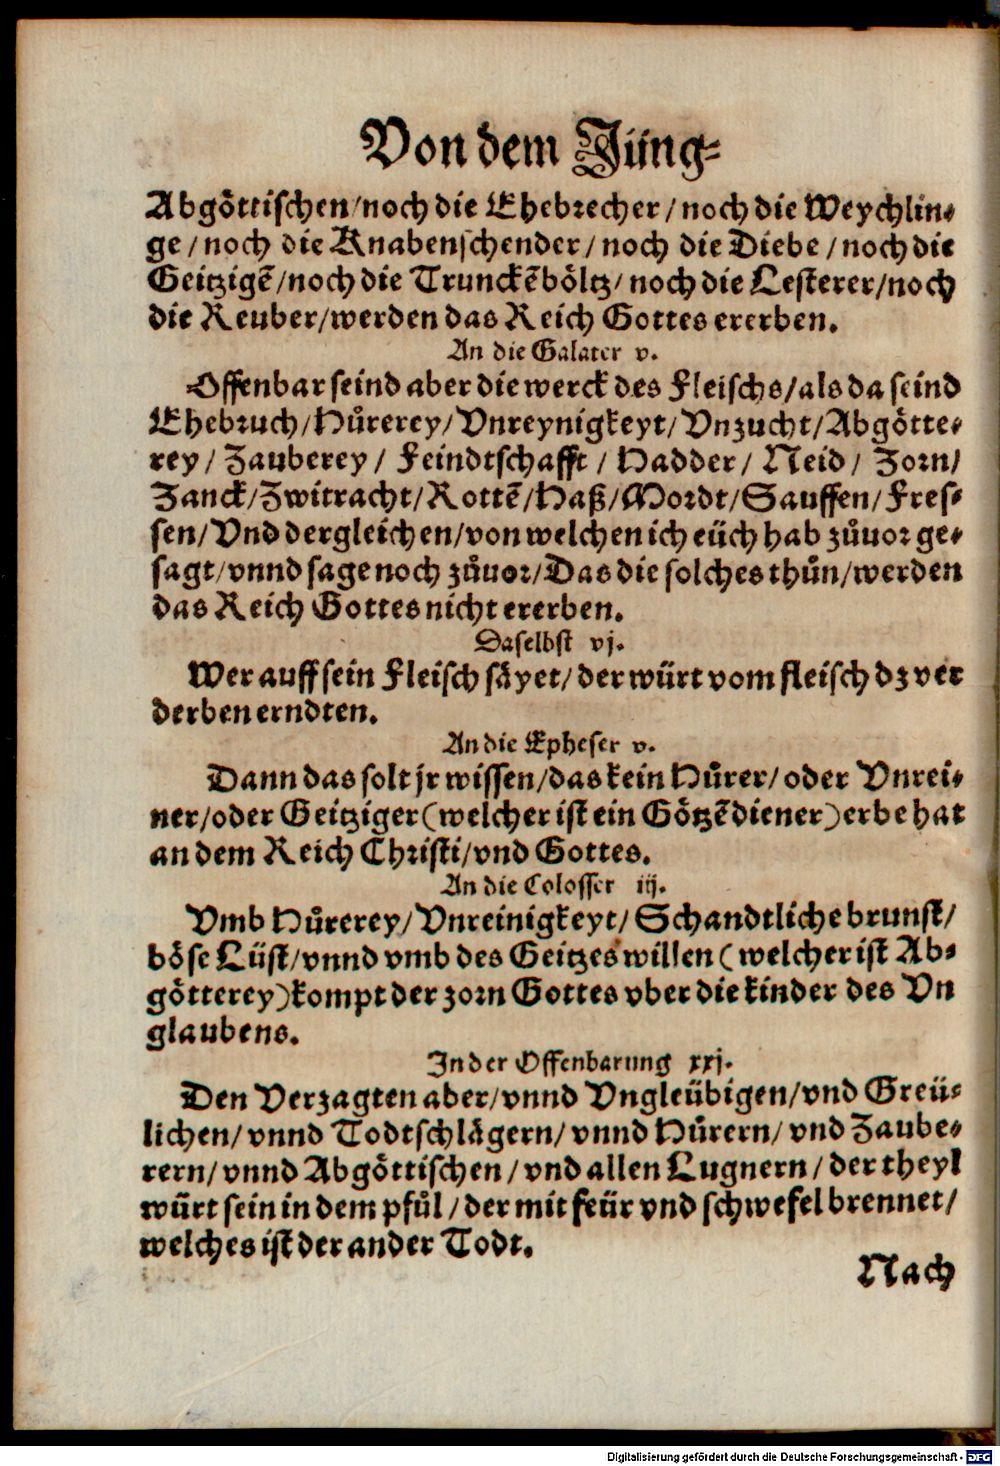 Von dem Jüng⸗
Abgöttischen/noch die Ehebrecher/noch die Weychlin⸗
ge/noch die Knabenschender/noch die Diebe/noch die
Geitzigẽ/noch die Trunckẽböltz/noch die Lesterer/noch
die Reuber/werden das Reich Gottes ererben.
An die Galater v.
Offenbar seind aber die werck des Fleischs/als da seind
Ehebruch/Hůrerey/Vnreynigkeyt/Vnzucht/Abgötte⸗
rey/Zauberey/Feindtschafft/Hadder/Neid/Zorn/
Zanck/Zwitracht/Rottẽ/Haß/Mordt/Sauffen/Fres⸗
sen/Vnd dergleichen/von welchen ich eüch hab zůuor ge⸗
sagt/vnnd sage noch zůuor/Das die solches thůn/werden
das Reich Gottes nicht ererben.
Daselbst vj.
Wer auff sein Fleisch säyet/der würt vom fleisch dz ver
derben erndten.
An die Epheser v.
Dann das solt jr wissen/das kein Hůrer/oder Vnrei⸗
ner/oder Geitziger(welcher ist ein Götzẽdiener)erbe hat
an dem Reich Christi/vnd Gottes.
An die Colosser iij.
Vmb Hůrerey/Vnreinigkeyt/Schandtliche brunst/
böse Lüst/vnnd vmb des Geitzes willen(welcher ist Ab⸗
götterey)kompt der zorn Gottes vber die kinder des Vn
glaubens.
In der Offenbarung xxj.
Den Verzagten aber/vnnd Vngleübigen/vnd Greü⸗
lichen/vnnd Todtschlägern/vnnd Hůrern/vnd Zaube⸗
rern/vnnd Abgöttischen/vnd allen Lugnern/der theyl
würt sein in dem pfůl/der mit feür vnd schwefel brennet/
welches ist der ander Todt.
Nach
Digitalisierung gefördert durch die Deutsche Forschungsgemeinschaft - DFG